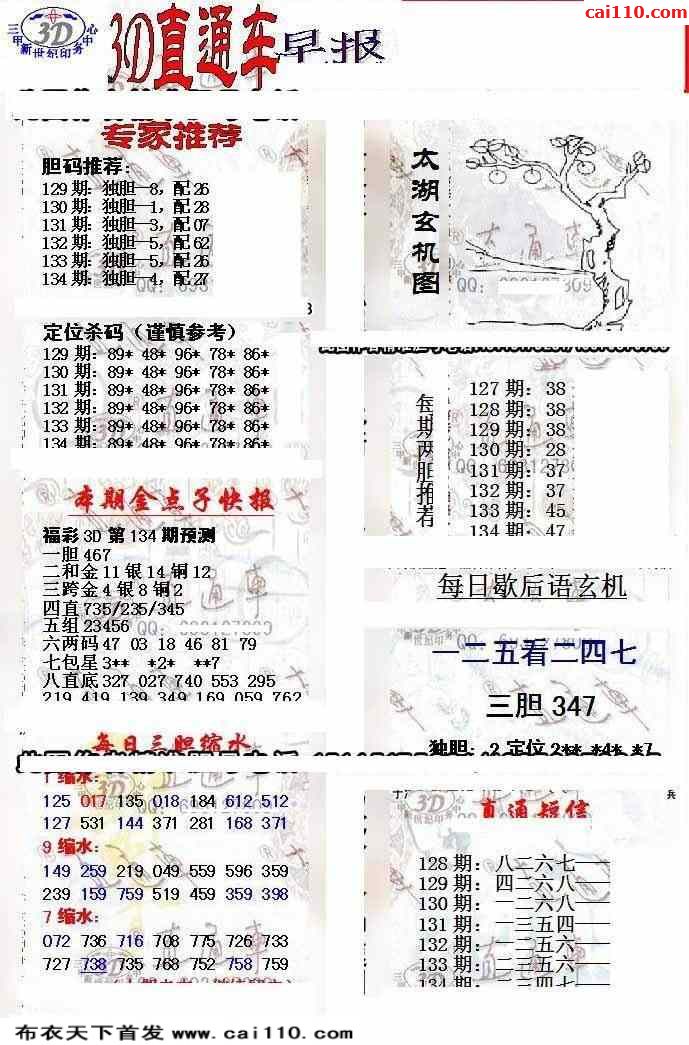 cai110.com
三甲 3D 中心
新世纪印务
3D直通车早报
专家推荐
胆码推荐：
129 期：独胆—8，配26
130 期：独胆—1，配28
131 期：独胆—3，配07
132 期：独胆—5，配62
133 期：独胆—5，配26
134 期：独胆—4，配27
定位杀码（谨慎参考）
129 期：89* 48* 96* 78* 86*
130 期：89* 48* 96* 78* 86*
131 期：89* 48* 96* 78* 86*
132 期：89* 48* 96* 78* 86*
133 期：89* 48* 96* 78* 86*
134 期：89* 48* 96* 78* 86*
本期金点子快报
福彩 3D 第 134 期预测
一胆 467
二和金 11 银 14 铜 12
三跨金 4 银 8 铜 2
四直 735/235/345
五组 23456
六两码 47 03 18 46 81 79
七包星 3** *2* **7
八直底 327 027 740 553 295
219 419 139 349 169 059 762
每日三胆缩水
1 缩水：
125 017 135 018 184 612 512
127 531 144 371 281 168 371
9 缩水：
149 259 219 049 559 596 359
239 159 759 519 459 359 398
7 缩水：
072 736 716 708 775 726 733
727 738 735 768 752 758 759
太湖玄机图
每期两胆推荐
127 期：38
128 期：38
129 期：38
130 期：28
131 期：37
132 期：37
133 期：45
134 期：47
每日歇后语玄机
一二五看二四七
三胆 347
独胆：2 定位 2** *4* *7
直通短信
128 期：八二六七——
129 期：四二六八——
130 期：一二六八——
131 期：一三五四——
132 期：一二五六——
133 期：二三五六——
134 期：二三四七——
布衣天下首发 www.cai110.com